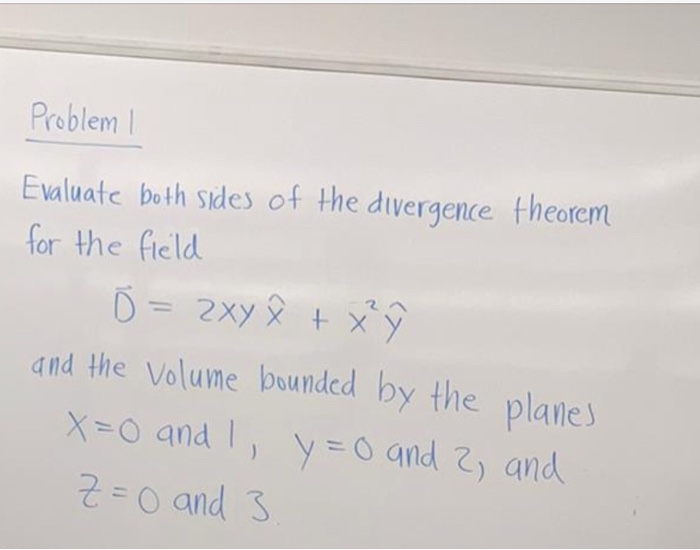 Problem 1
Evaluate both sides of the divergence theorem
for the field
D⃗ = 2xy x̂ + x² ŷ
and the volume bounded by the planes
x=0 and 1, y=0 and 2, and
z=0 and 3.